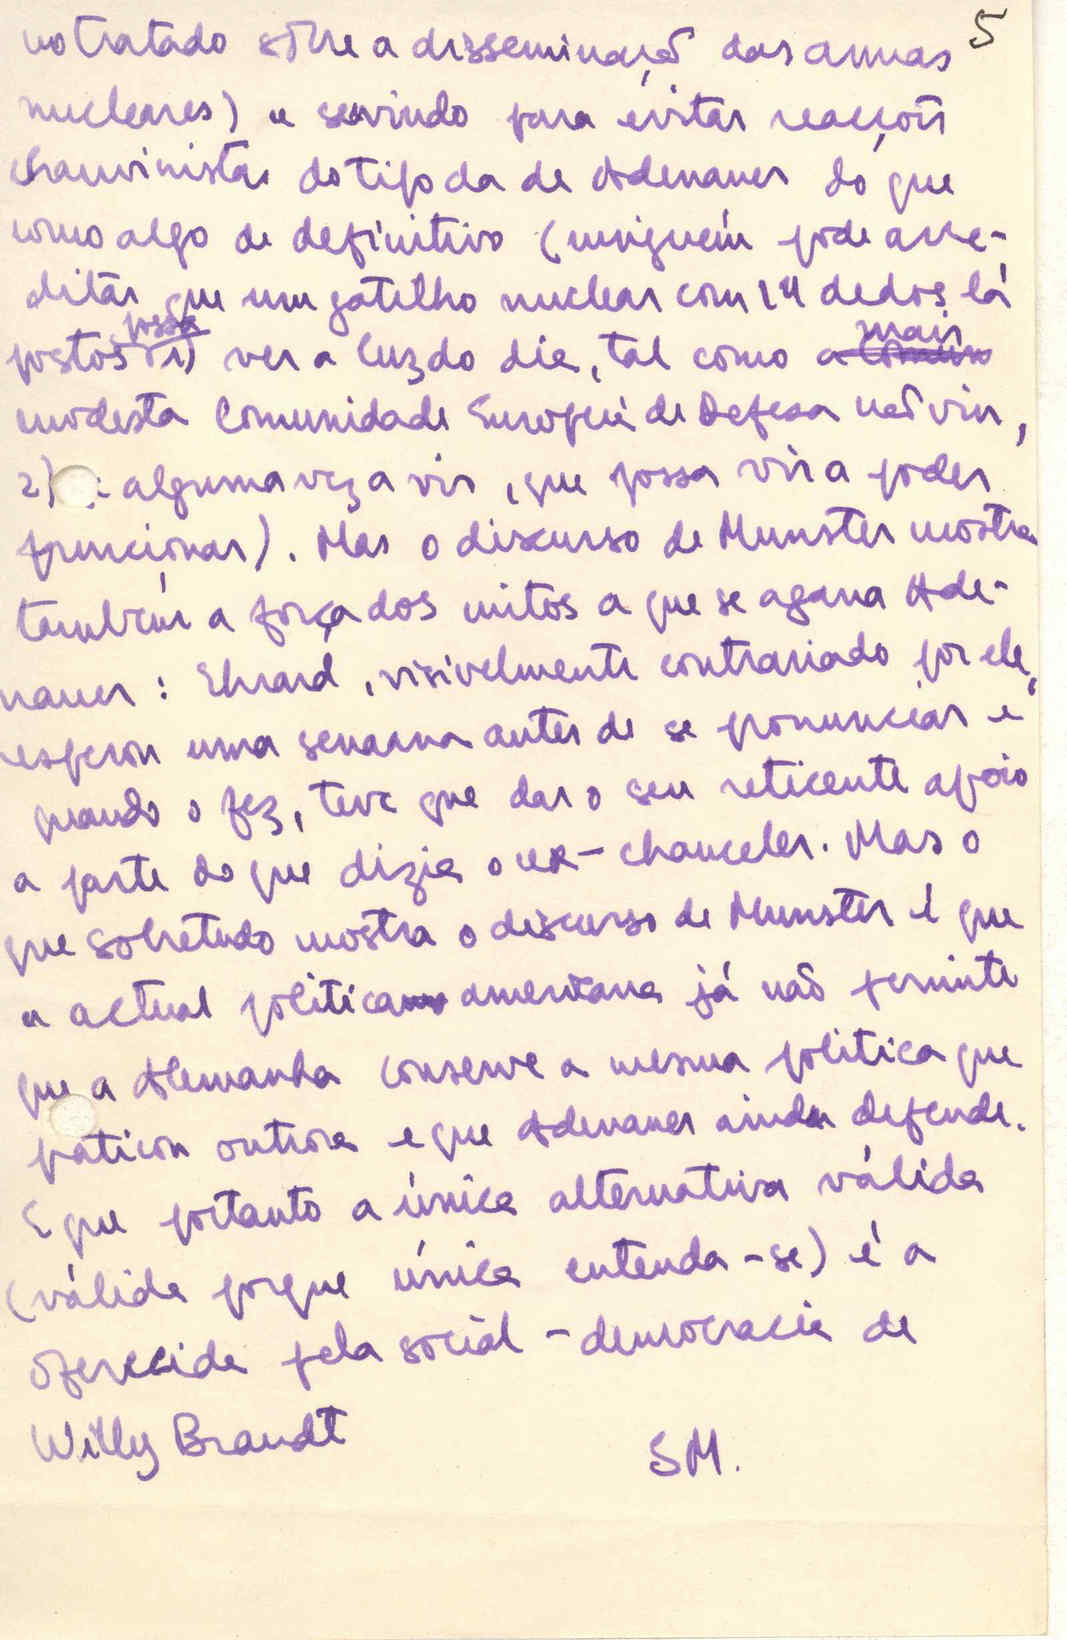 5
no tratado sôbre a disseminação das armas
nucleares) e servindo para evitar reacções
chauvinistas do tipo da de Adenauer do que
como algo de definitivo (ninguém pode acre-
ditar que um gatilho nuclear com 14 dedos lá
possa
mais
postos 1) ver a luz do dia, tal como a
modesta Comunidade Europeia de Defesa não viu,
2) se alguma vez a vir, que possa vir a poder
funcionar). Mas o discurso de Munster mostra
também a força dos mitos a que se agarra Ade-
nauer: Ehrard, visivelmente contrariado por ele,
esperou uma semana antes de se pronunciar e
quando o fez, teve que dar o seu reticente apoio
a parte do que dizia o ex-chanceler. Mas o
que sobretudo mostra o discurso de Munster é que
a actual politica americana já não permite
que a Alemanha conserve a mesma politica que
praticou outrora e que Adenauer ainda defende.
E que portanto a única alternativa válida
(válida porque única entenda-se) é a
oferecida pela social-democracia de
Willy Brandt
SM.